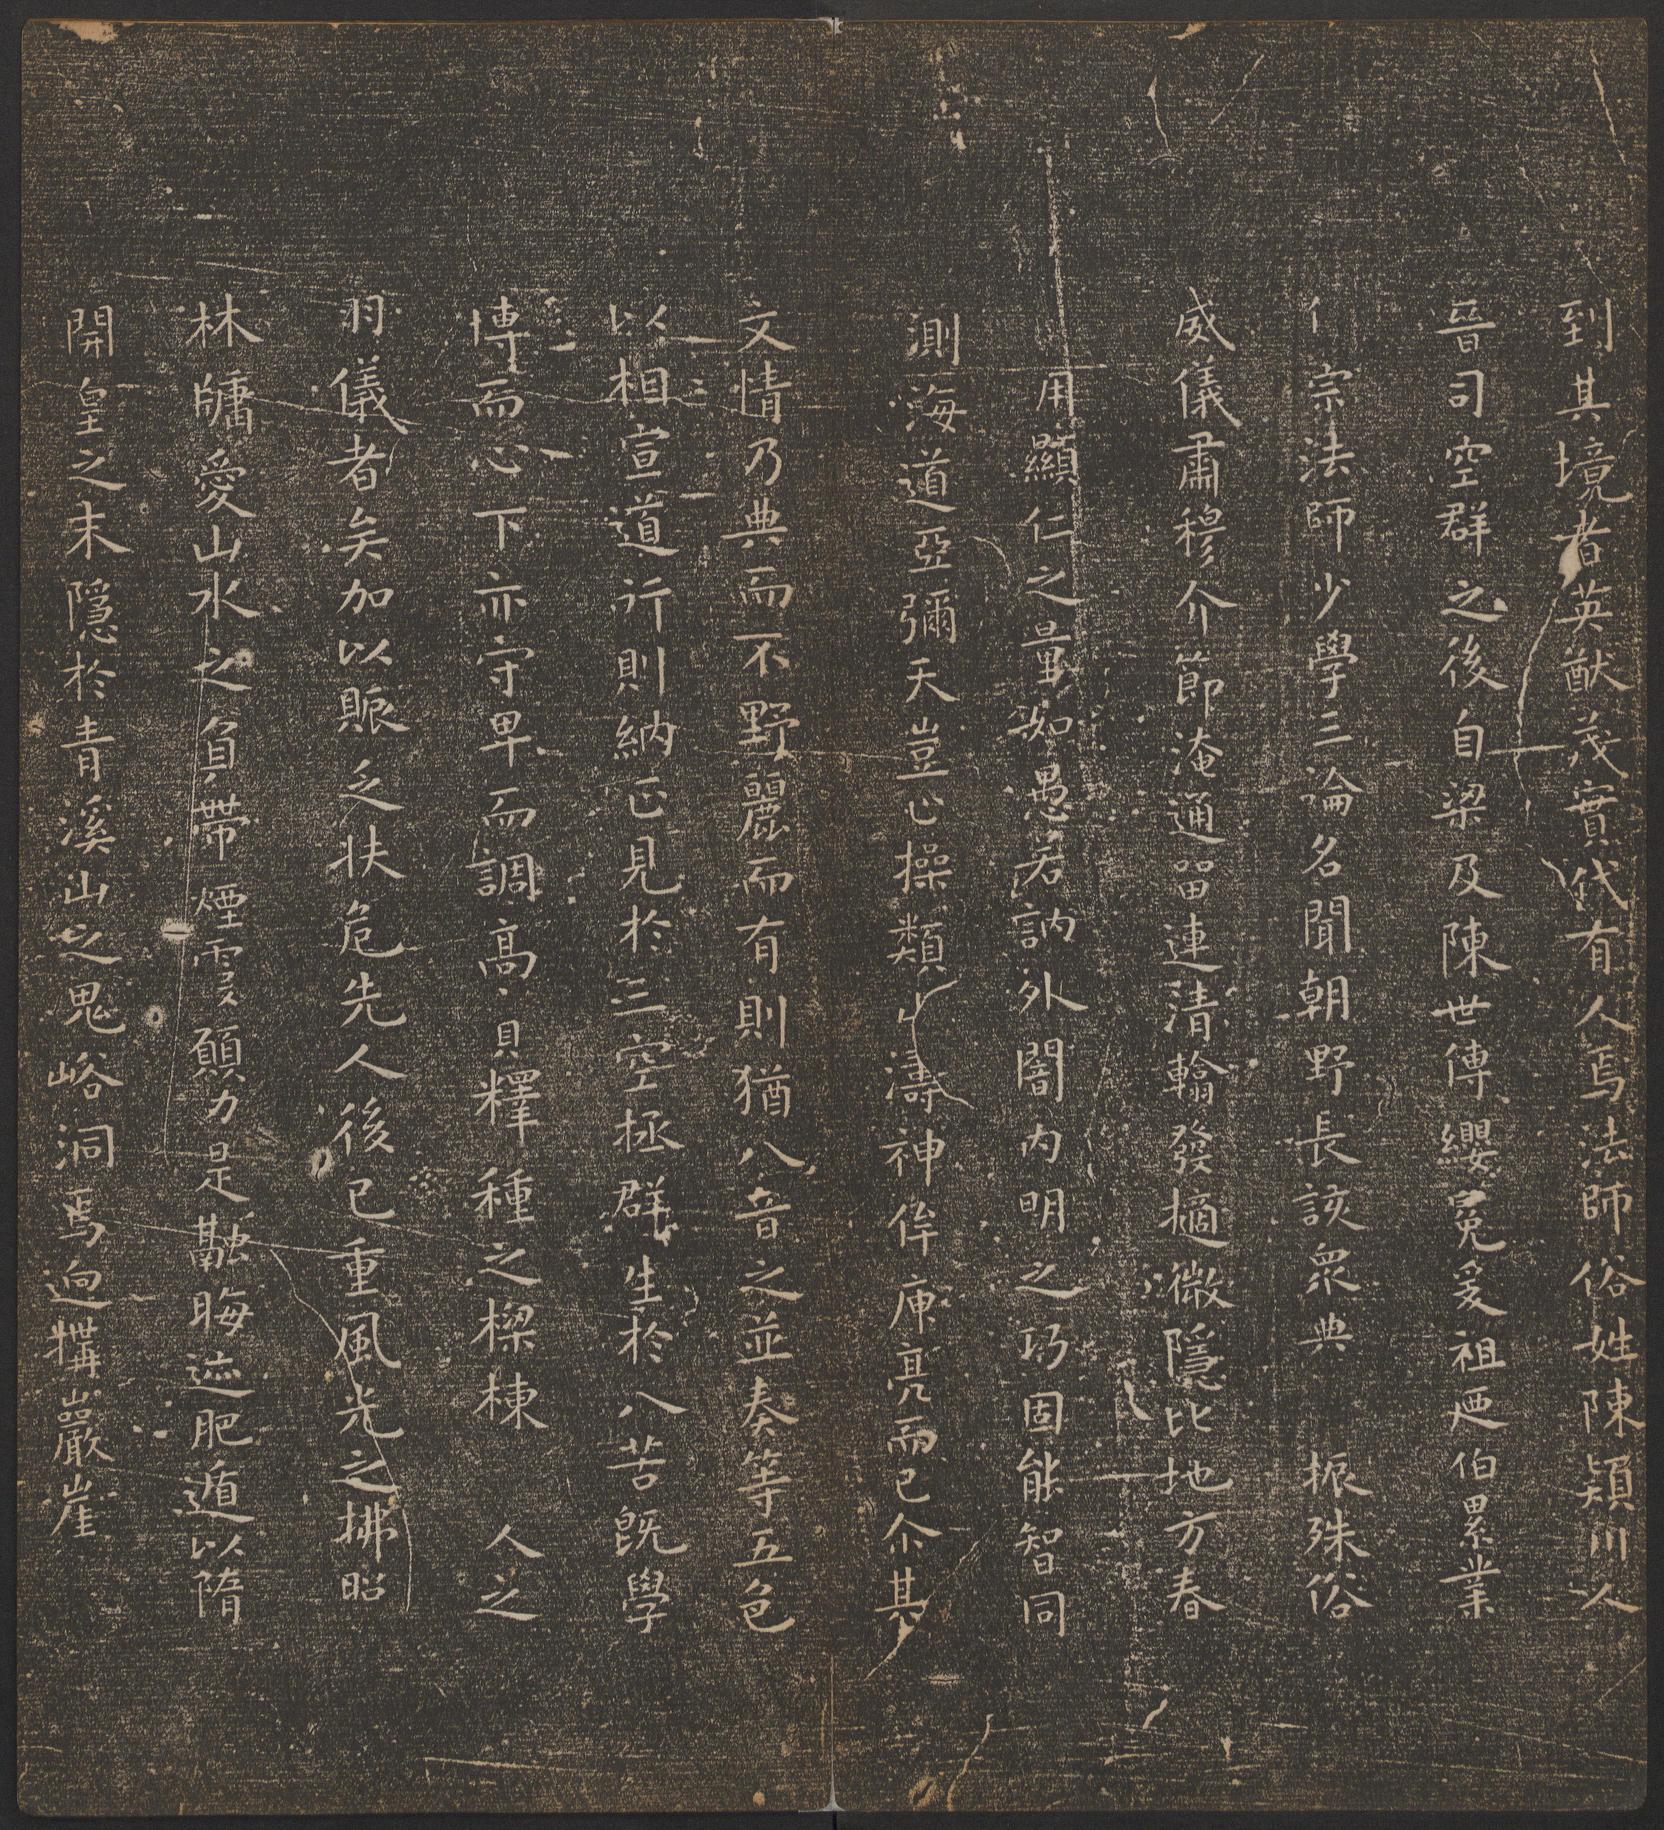 到其境者英猷茂實代有人焉法師俗姓陳潁川人
晉司空群之後自梁及陳世傳纓冕爰祖迺伯累業
宗法師少學三論名聞朝野長該眾典 振殊俗
威儀肅穆介節淹通留連清翰發擿微隱比地方春
用顯仁之量如愚若訥外闇內明之巧固能智同
測海道亞彌天豈止操類山濤神侔庾亮而已介其
文情乃典而不野麗而有則猶八音之並奏等五色
以相宣道行則納正見於三空拯群生於八苦既學
博而心下亦守卑而調高 釋種之樑棟 人之
羽儀者矣加以賑乏扶危先人後己重風光之拂照
林牖愛山水之負帶煙霞願力是融晦迹肥遁以隋
開皇之末隱於青溪山之鬼峪洞焉迥構巖崖